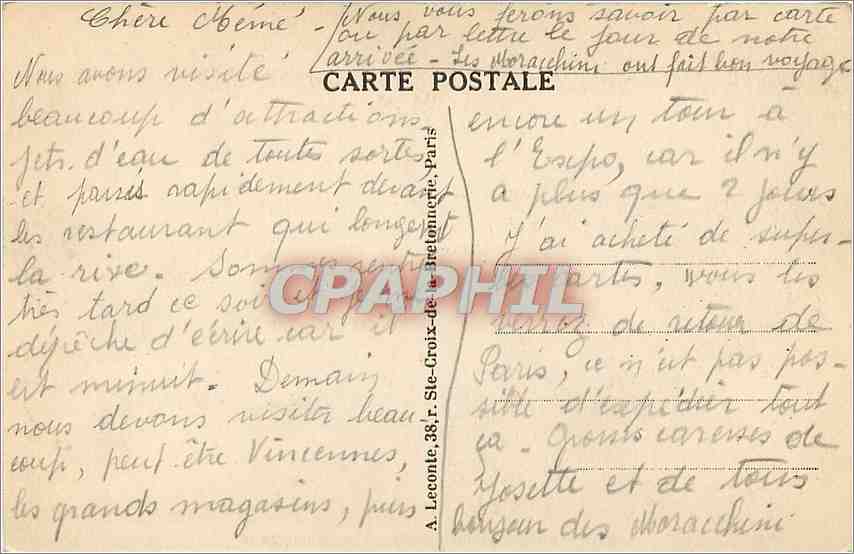 Chère Mémé -
Nous vous ferons savoir par carte
ou par lettre le jour de notre
arrivée - Les Moracchini ont fait bon voyage
CARTE POSTALE
Nous avons visité
beaucoup d'attractions,
jets d'eau de toutes sortes,
et passés rapidement devant
les restaurant qui longent
la rive. Sommes rentrés
très tard ce soir et je me
dépêche d'écrire car il
est minuit. Demain
nous devons visiter beau-
coup, peut être Vincennes,
les grands magasins, puis
A. Leconte, 38, r. Ste-Croix-de-la-Bretonnerie, Paris
encore un tour à
l'Expo, car il n'y
a plus que 2 jours
J'ai acheté de super-
bes cartes, vous les
verrez de retour de
Paris, ce n'est pas pos-
sible d'expédier tout
ça. Grosses caresses de
Josette et de tous
bonjour des Moracchini
CPAPHIL